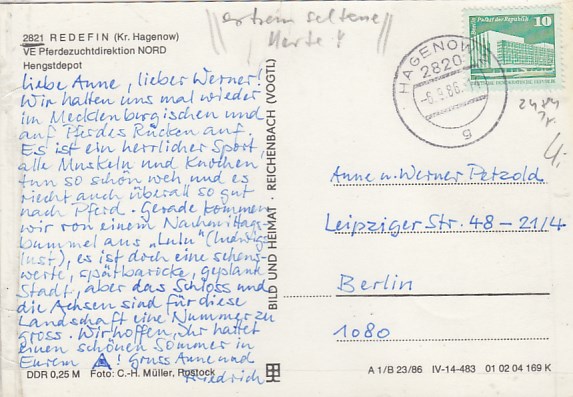 extrem seltene
Karte !
2821 REDEFIN (Kr. Hagenow)
VE Pferdezuchtdirektion NORD
Hengstdepot
Liebe Anne, lieber Werner!
Wir halten uns mal wieder
im Mecklenburgischen und
auf Pferdes Rücken auf.
Es ist ein herrlicher Sport,
alle Muskeln und Knochen
tun so schön weh und es
riecht auch überall so gut
nach Pferd. Gerade kommen
wir von einem Nachmittags-
bummel aus „Lulu" (Ludwigs-
lust), es ist doch eine sehens-
werte, spätbarocke, geplante
Stadt, aber das Schloss und
die Achsen sind für diese
Landschaft eine Nummer zu
gross. Wir hoffen, Ihr hattet
einen schönen Sommer in
Eurem ! Gruss Anne und
Friedrich
DDR 0,25 M Foto: C.-H. Müller, Rostock
BILD UND HEIMAT · REICHENBACH (VOGTL)
Palast der Republik
10
HAGENOW
2820
-8.9.86.
g
2484
4,-
Anne u. Werner Petzold
Leipziger Str. 48 - 21/4
Berlin
1080
A 1/B 23/86 IV-14-483 01 02 04 169 K